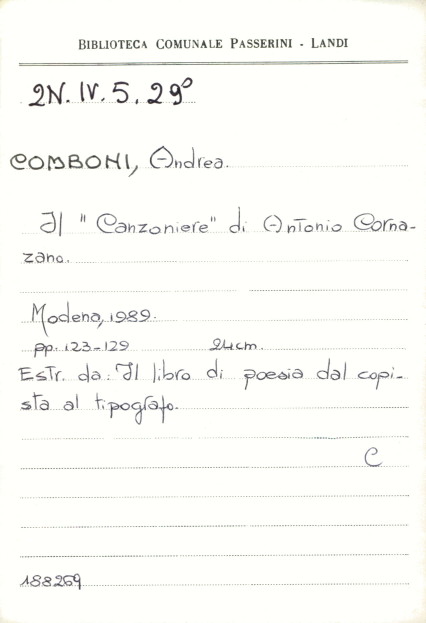 BIBLIOTECA COMUNALE PASSERINI - LANDI
2N. IV. 5. 29°
COMBONI, Andrea.
Il "Canzoniere" di Antonio Corna-
zano.
Modena, 1989.
pp. 123-129 24cm.
Estr. da: Il libro di poesia dal copi-
sta al tipografo.
C
188269